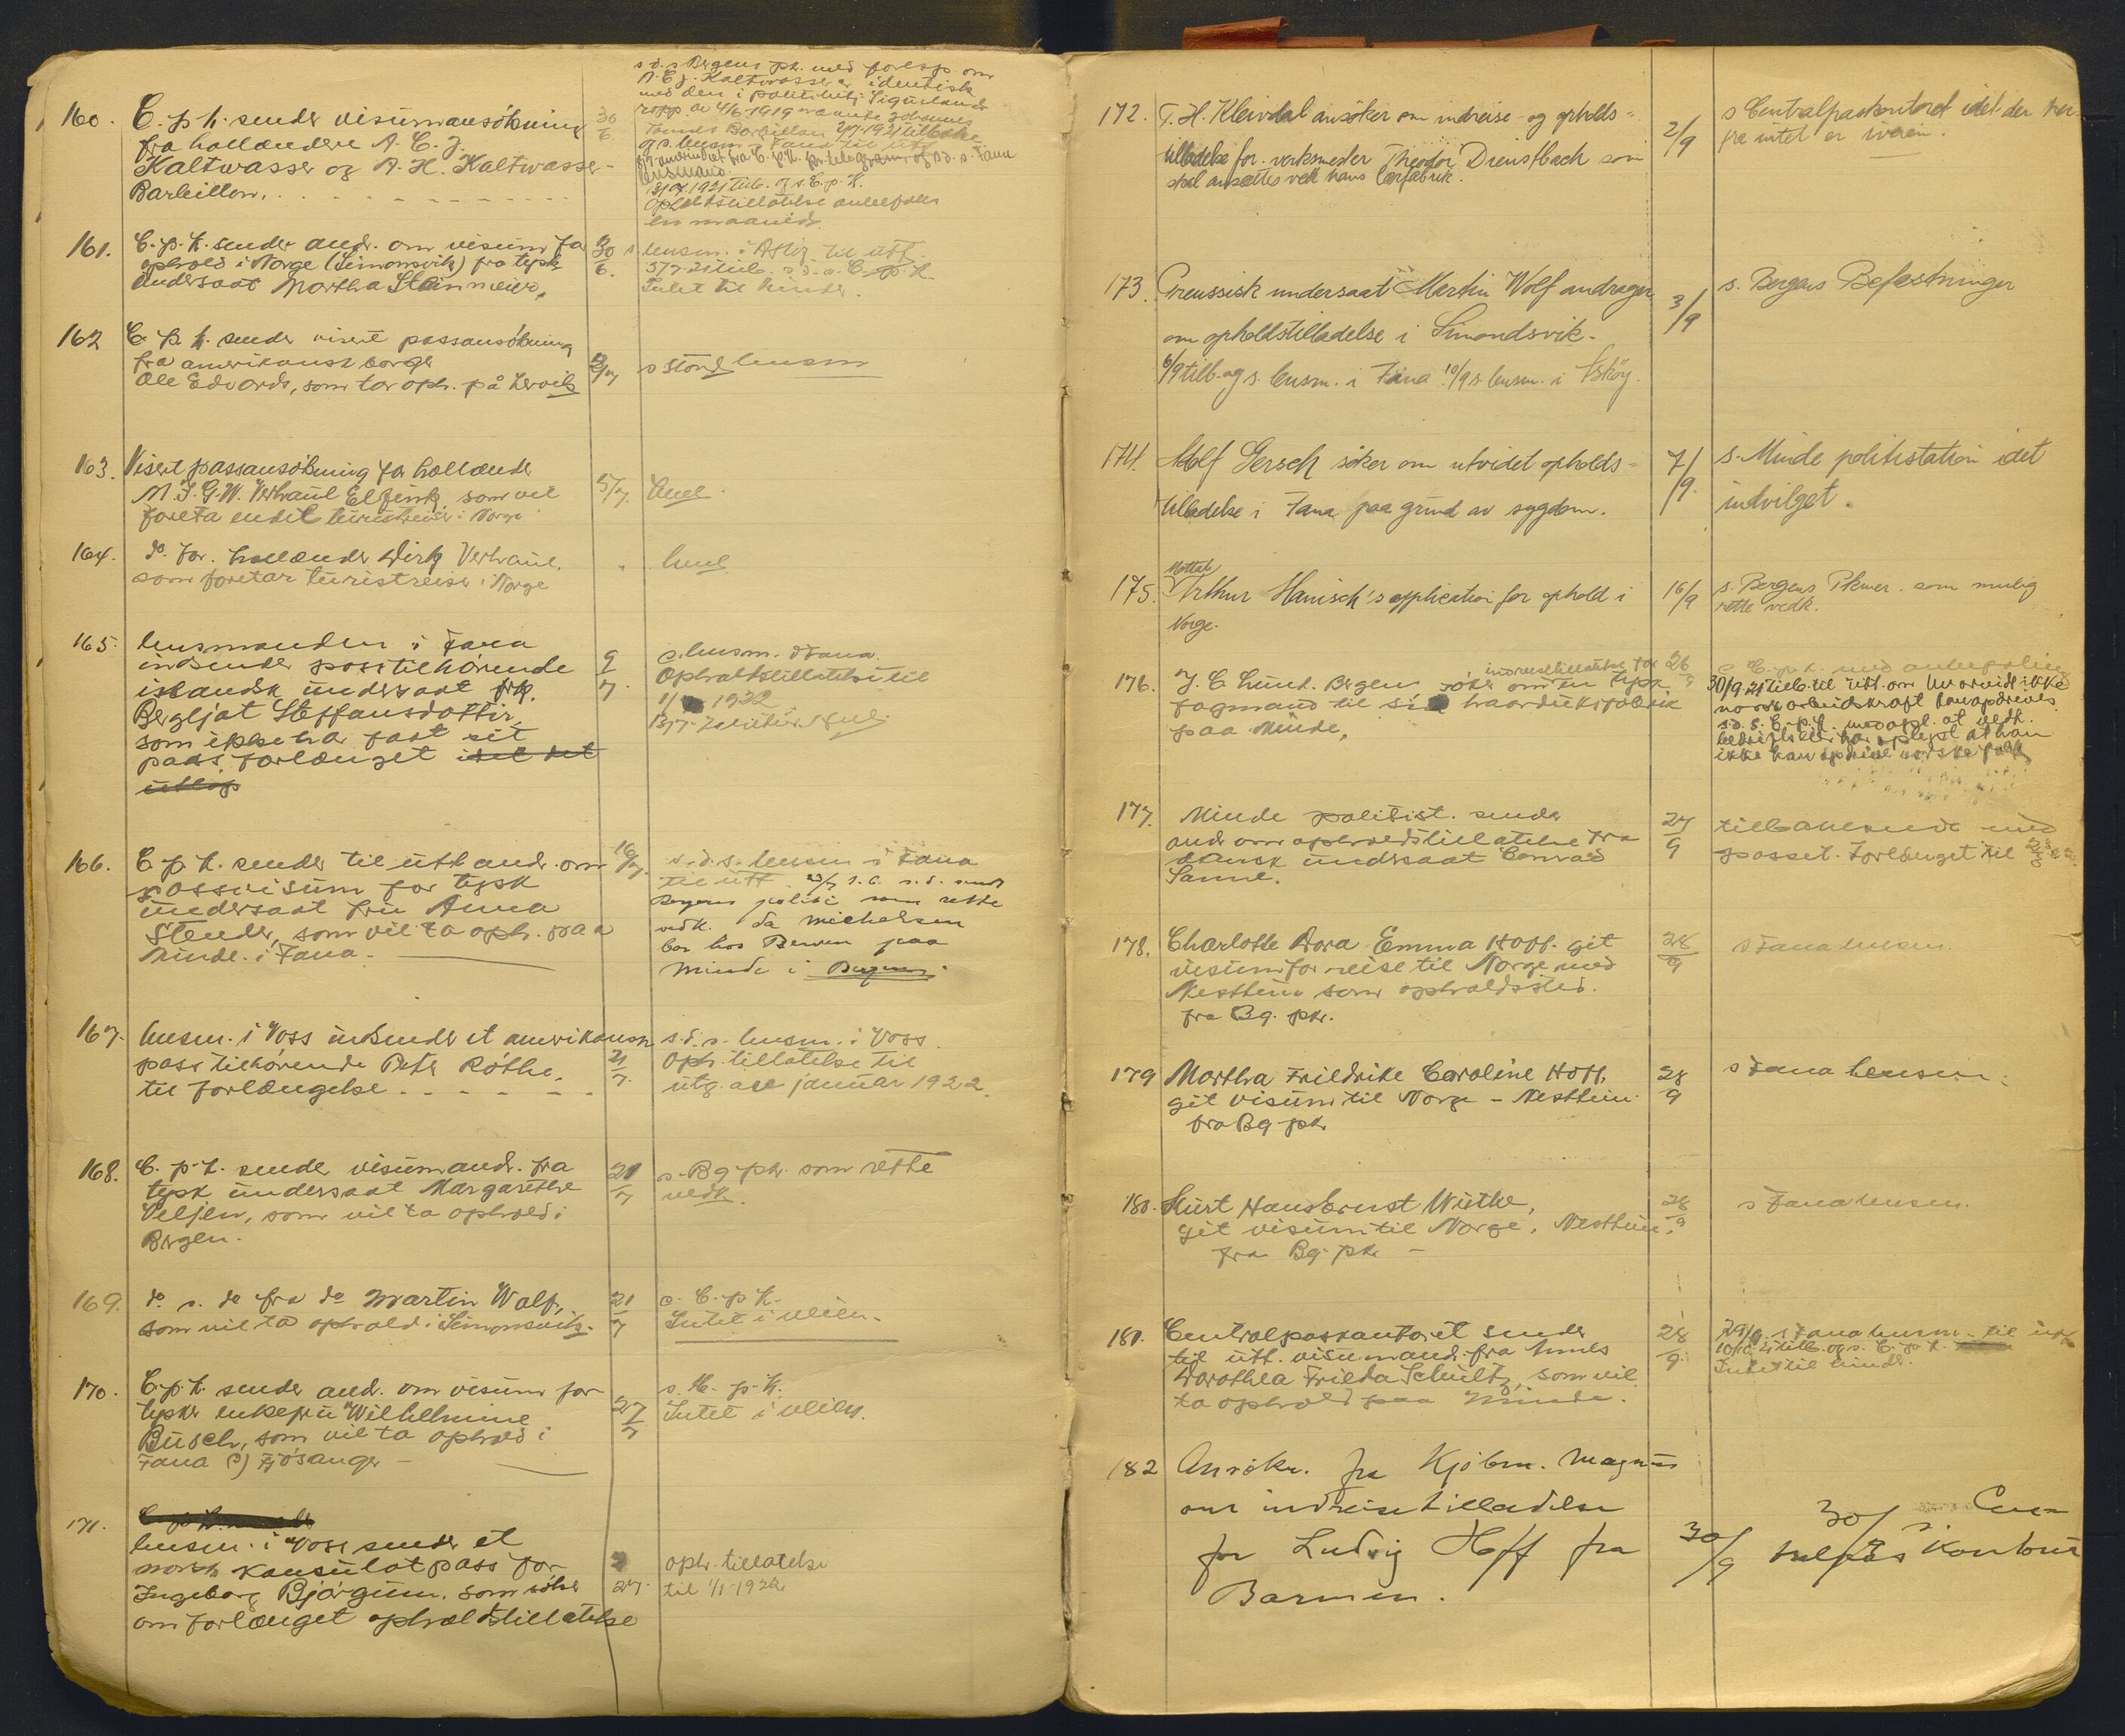 160. C. p. k. sender visumansökning
fra hollændere A. C. J.
Kaltwasser og A. H. Kaltwasser-
Barbillon.
30/6.
s. d. s. Bergens pk. med foresp. om
A. C. J. Kaltwasser er identisk
med den i politiets
av 4/6-1919 nævnte Johannes
Barbillon 2/7-1921 tilbake
og s. lensm. i Fana til utt.
fra C. p. k. pr. telegram og s. d. s. Fana
lensmand.
1921 tilb. og s. C. p. k.
Opholdstillatelse anbefales
en maaned.
161. C. p. k. sender andr. om visum for
ophold i Norge (Simonsvik) fra tysk
undersaat Martha Steinmeier,
30/6.
s. lensm. i Askøy til utt.
5/7-21 tilb. s. d. s. C. p. k.
Intet til hinder.
162 C. p. k. sender visert passansökning
fra amerikansk borger
Ole Edvards, som tar oph. på Lervik
2/7
s. Stord lensm
163. Visert passansökning for hollænder
M. J. G. W. Verhaul Elzink, som vil
foreta endel turistreiser i Norge
5/7.
Henl.
164. do. for. hollænder Dirk Verhaul,
som foretar turistreise i Norge
"
henl.
165. lensmanden i Fana
indsender pass tilhörende
islandsk undersaat frk.
Bergljot Steffansdottir,
som ikke har faat sit
pass forlænget idet det
utlöp
9/7.
s. lensm. i Fana.
Opholdstillatelse til
1/ 1922
166. C. p. k. sender til utt andr. om
passvisum for tysk
undersaat frü Anna
Stender, som vil ta oph. paa
Minde. i Fana.
16/7.
s. d. s. lensm i Fana
til utt. 23/7 s. d. s. d. sendt
Bergens politi som rette
vedk. da Michelsen
bor hos Berven paa
Minde i Bergen.
167. lensm. i Voss indsender et amerikansk
pass tilhörende Peter Röthe,
til forlængelse
21/7.
s. d. s. lensm. i Voss.
Oph. tillatelse til
utg. av januar 1922.
168. C. p. k. sender visumandr. fra
tysk undersaat Margarethe
Veljen, som vil ta ophold i
Bergen.
21/7
s. Bg pk. som rette
vedk.
169. do. s. do fra do Martin Wolf,
som vil ta ophold i Simonsvik.
21/7
s. C. p. k.
Intet i veien.
170. C. p. k. sender andr. om visum for
tysk enkefrü Wilhelmine
Büsch, som vil ta ophold i
Fana (?) Fjösanger
27/7
s. C. p. k.
Intet i veien.
171.
lensm. i Voss sender et
norsk konsulatpass for
Ingeborg Björgum, som söker
om forlænget opholdstillatelse
27.
oph. tillatelse
til 1/1-1922
172. T. H. Kleivdal ansöker om indreise- og opholds-
tilladelse for verksmester Theodor Dienstbach som
skal ansættes ved hans lærfabrik.
2/9
s Centralpaskontoret idet der her-
fra intet er iveien.
173. Preussisk undersaat Martin Wolf andrager
om opholdstilladelse i Simondsvik.
6/9 tilb. og s. lensm. i Fana 10/9 s. lensm. i Askøy.
3/9
s. Bergens Befæstninger
174. Adolf Gersch söker om utvidet opholds-
tilladelse i Fana paa grund av sygdom.
7/9.
s. Minde politistation idet
indvilget.
175. Mottat
Arthur Hanisch's application for ophold i
Norge.
16/9
s. Bergens Pkmer. som mulig
rette vedk.
176. J. C. Lund. Bergen söker om indreisetillatelse for en tysk
fagmand til sin haardukfabrik
paa Minde,
26/9
s. C. p. k. med anbefaling
30/9-21 tilb. til utt. om hvorvidt ikke
norsk arbeidskraft kan opdrives
s. d. s. C. p. k. med opl. at vedk.
bedriftseier har oplyst at han
ikke kan opdrive norske folk
177. Minde politist. sender
andr om opholdstillatelse fra
dansk undersaat Conrad
Sanne.
27/9
tilbakesendt med
passet. Forlænget til
178. Charlotte Dora Emma Hoff. git
visum for reise til Norge med
Nesttun som opholdssted.
fra Bg. pk.
28/9
s Fana lensm.
179 Martha Friedrike Caroline Hoff.
git visum til Norge - Nesttun
fra Bg. pk
28/9
s Fana lensm.
180. Kurt Hans Ernst Wüthe,
git visum til Norge, Nesttun,
fra Bg. pk -
28/9
s Fana lensm.
181. Centralpaskontoret sender
til utt. visumandr. fra Annes
Dorothea Frieda Schultz, som vil
ta ophold paa Minde.
28/9.
29/9. s Fana lensm. til utt
10/10. 21 tilb. og s. C. p. k.
Intet til hinder.
182 Ansökn. fra Kjöbm. Magnus
om indreisetilladelse
for Ludvig Hoff fra
Barmen.
30/9
30/9 s. Cen-
tralpas kontoret